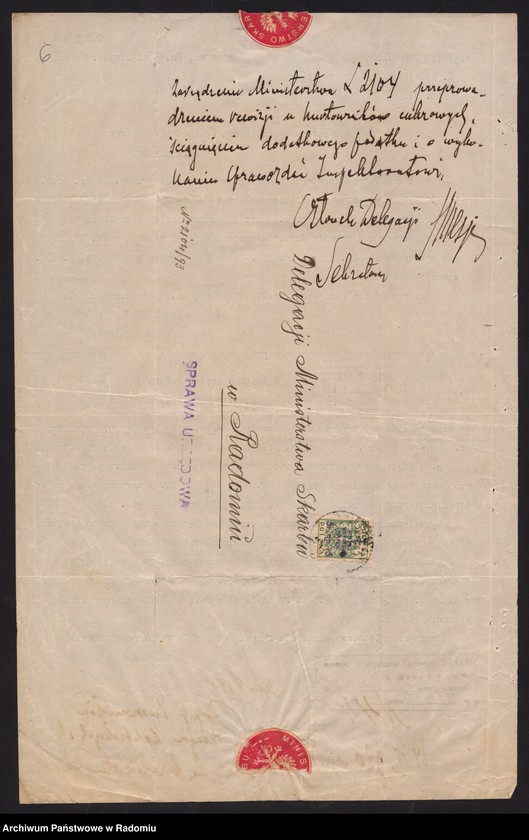 6
ERSTWO SKAR
Zarządzenie Ministerstwa L 2104 przeprowa-
dzeniem rewizji u hurtowników cukrowych,
ściągnięciem dodatkowego podatku i o wyko-
naniu sprawozdać Inspektoratowi.
Członek Delegacji
Sekretarz
No 2104/93
Delegacji Ministerstwa Skarbu
w Radomiu
SPRAWA URZĘDOWA
MINIS
Archiwum Państwowe w Radomiu